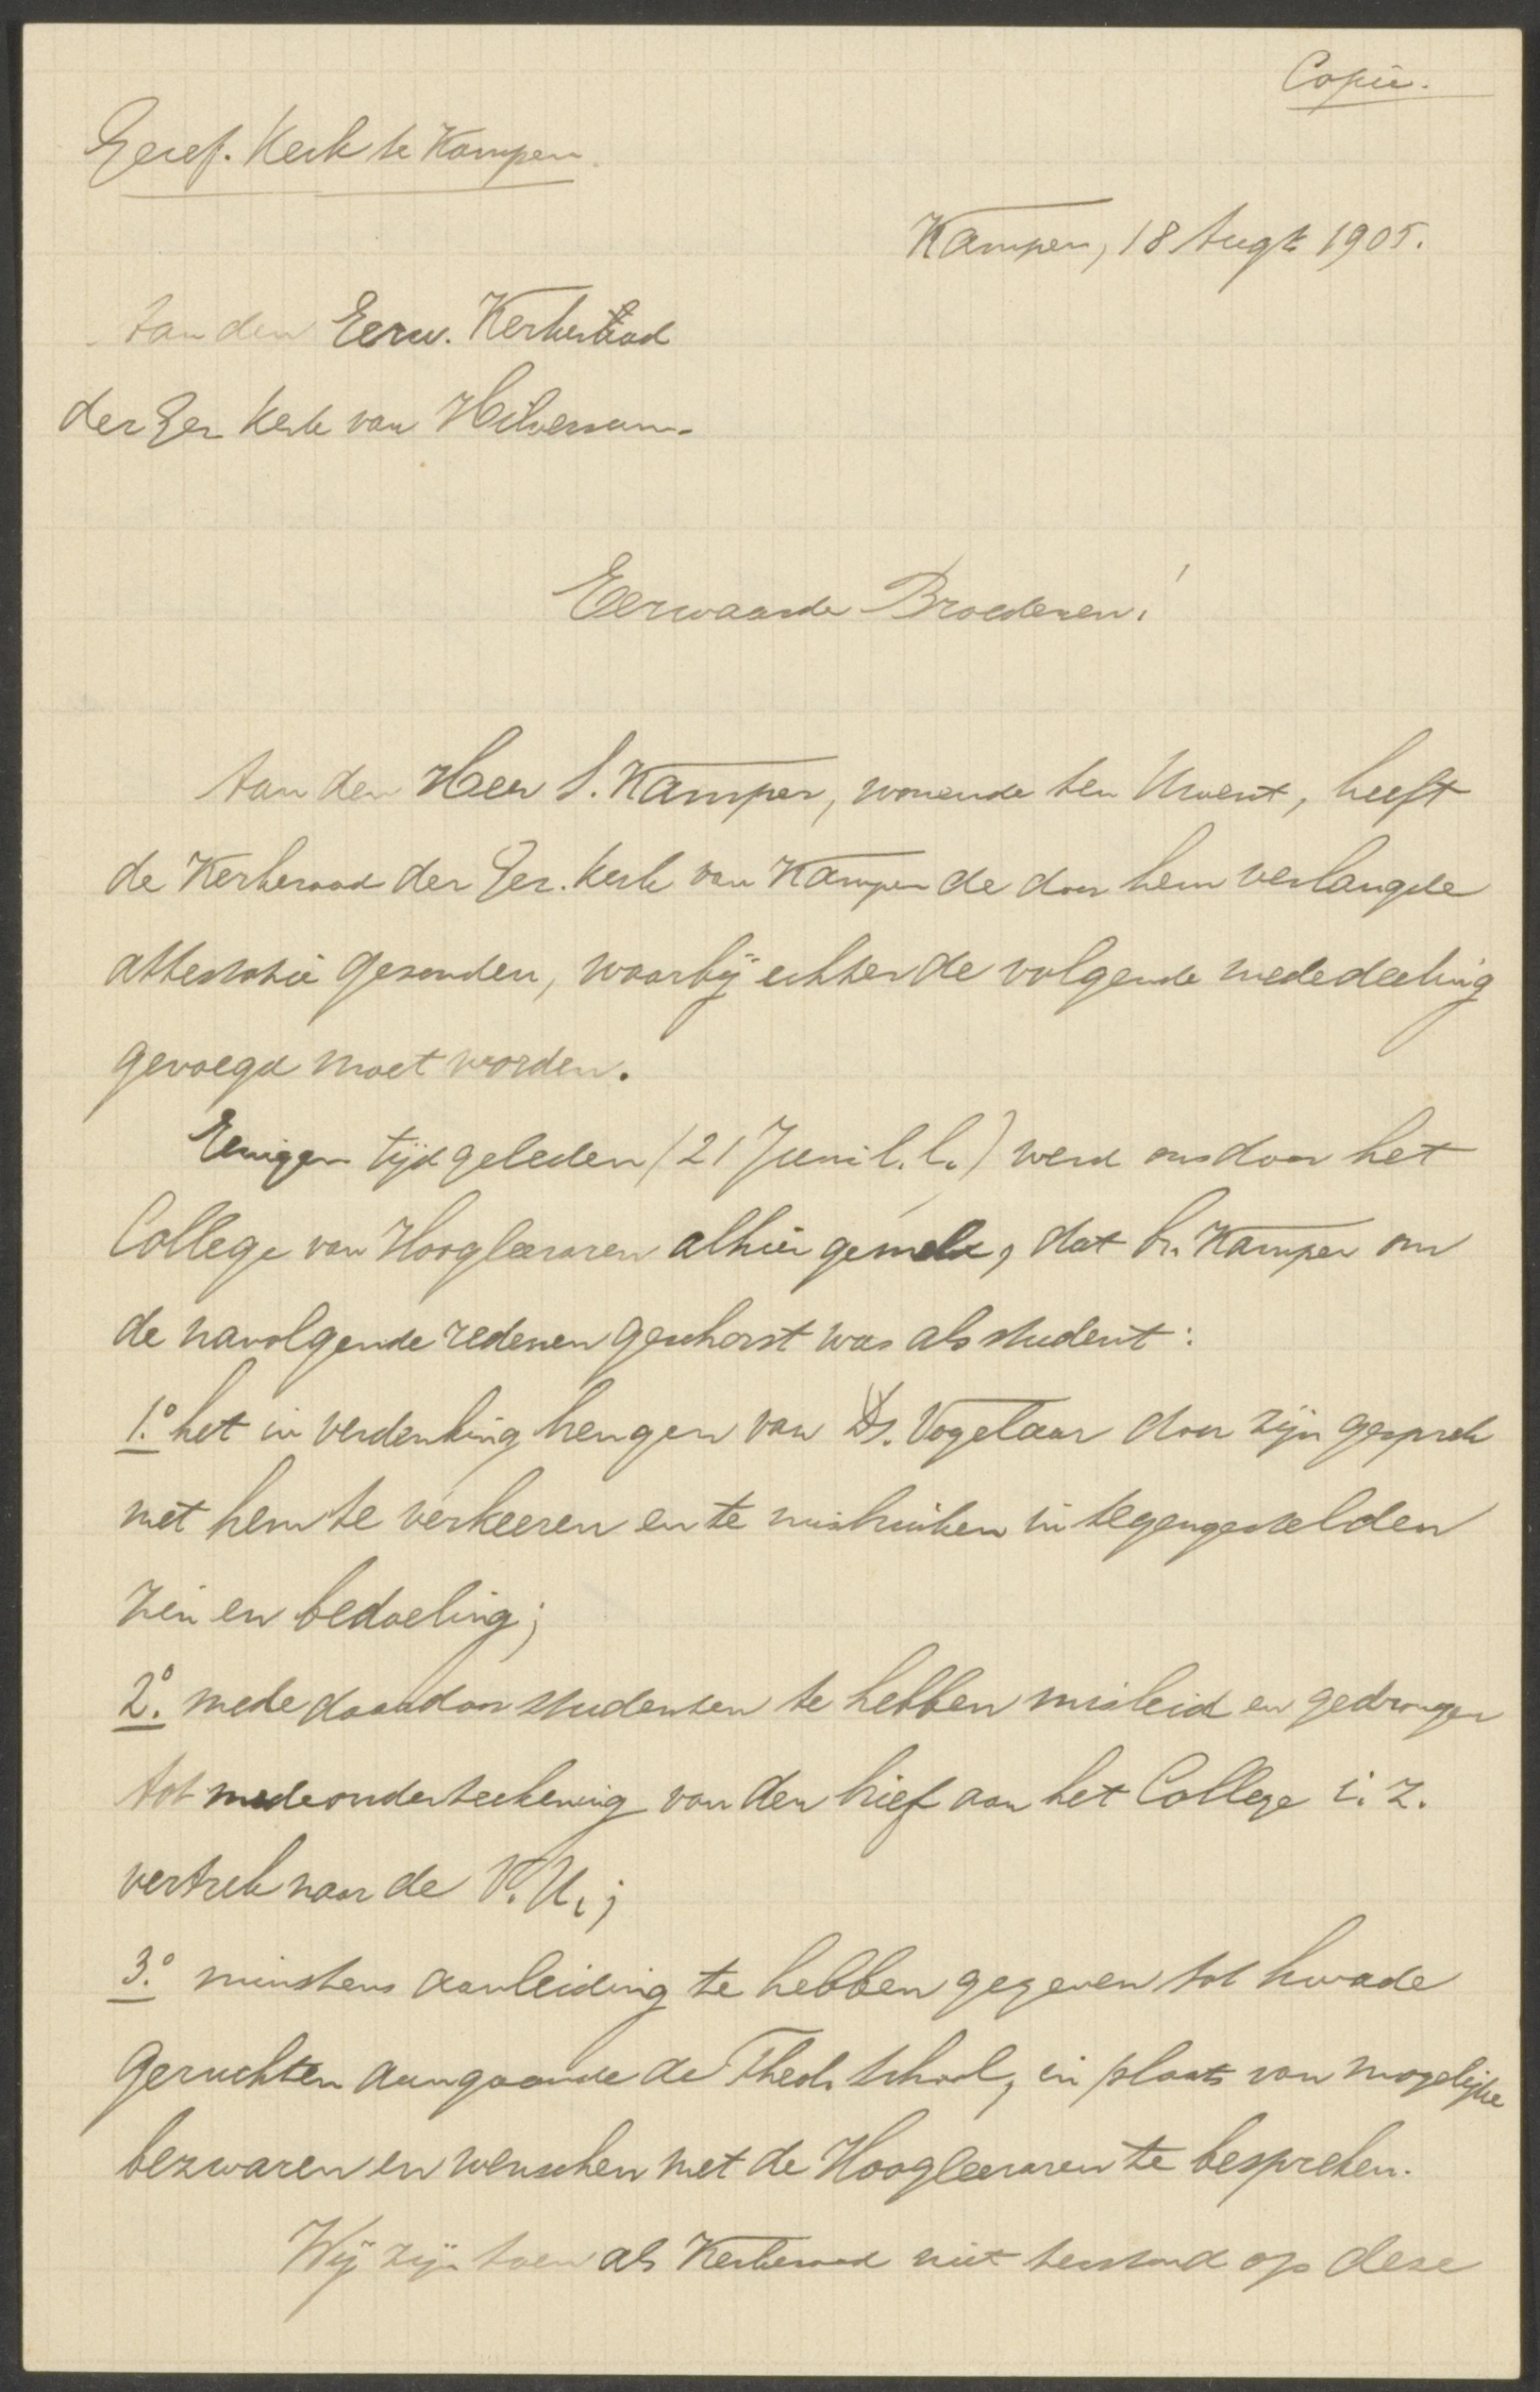 Copie.
Geref. Kerk te Kampen.
Kampen, 18 Augt 1905.
Aan den Eerw. Kerkeraad
der Ger. Kerk van Hilversum.
Eerwaarde Broederen!
Aan den Heer S. Kamper, wonende ten Uwent, heeft
de Kerkeraad der Ger. Kerk van Kampen de door hem verlangde
attestatie gezonden, waarbij echter de volgende mededeeling
gevoegd moet worden.
Eenigen tijd geleden (21 Juni l.l.) werd ons door het
College van Hoogleeraren alhier gemeld, dat br. Kamper om
de navolgende redenen geschorst was als student:
1.º het in verdenking brengen van Ds. Vogelaar door zijn gesprek
met hem te verkeeren en te misbruiken in tegengestelden
zin en bedoeling;
2.º mede daardoor studenten te hebben misleid en gedrongen
tot medeonderteekening van den brief aan het College i. z.
vertrek naar de V. U.;
3.º minstens aanleiding te hebben gegeven tot kwade
geruchten aangaande de Theol. School, in plaats van mogelijke
bezwaren en wenschen met de Hoogleeraren te bespreken.
Wij zijn toen als Kerkeraad niet terstond op deze